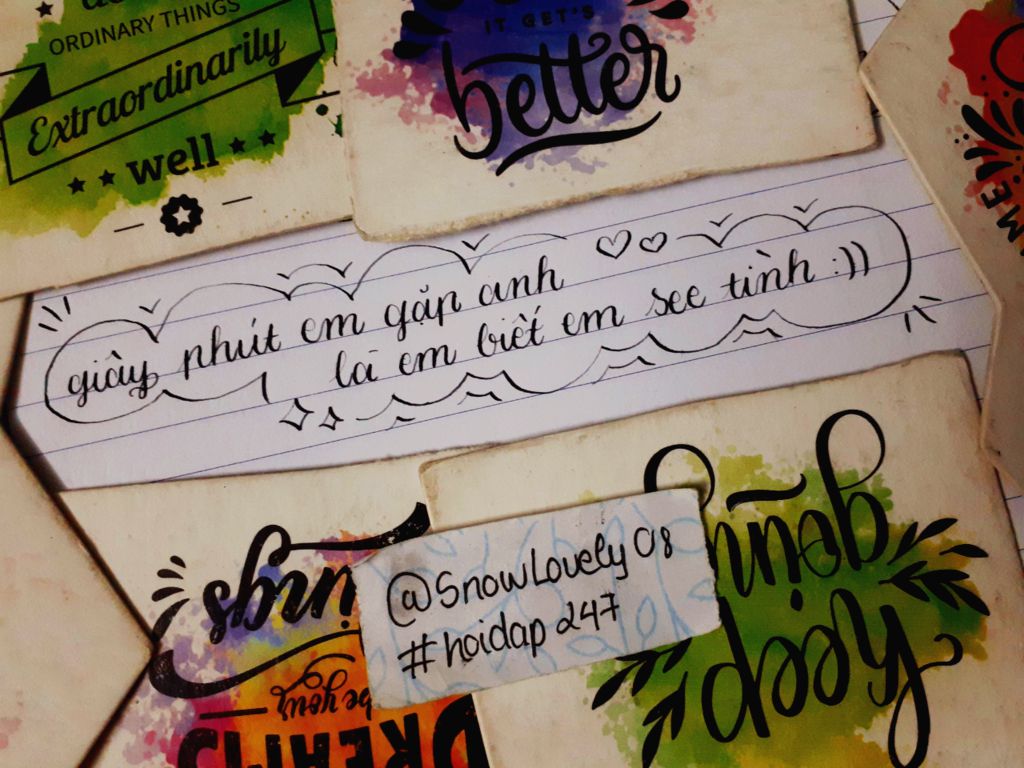 ORDINARY THINGS
Extraordinarily
well
IT GET'S
better
ME
giây phút em gặp anh
là em biết em see tình :))
@SnowLovely08
#hoidap247
be your
DREAMS
Keep
going